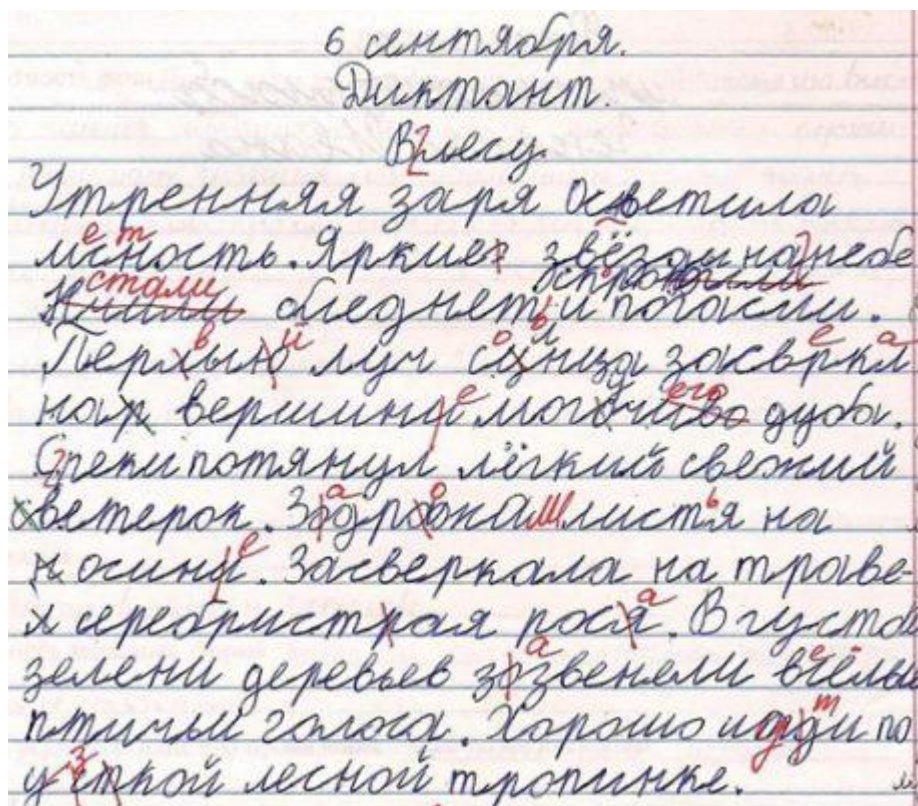 6 сентября.
Диктант.
Влесу.
Утренняя заря осветила
местность. Яркие звёзды на небе
стали обледнет и погасли.
луч засвркл
на вершини дуба.
Среки потянул лёгкий свежий
ветерок. листья на
осини. Засверкала на траве
серебристрая рося. В густой
зелени деревьев зозвенели
птичьи голоса. Хорошо по
лесной тропинке.